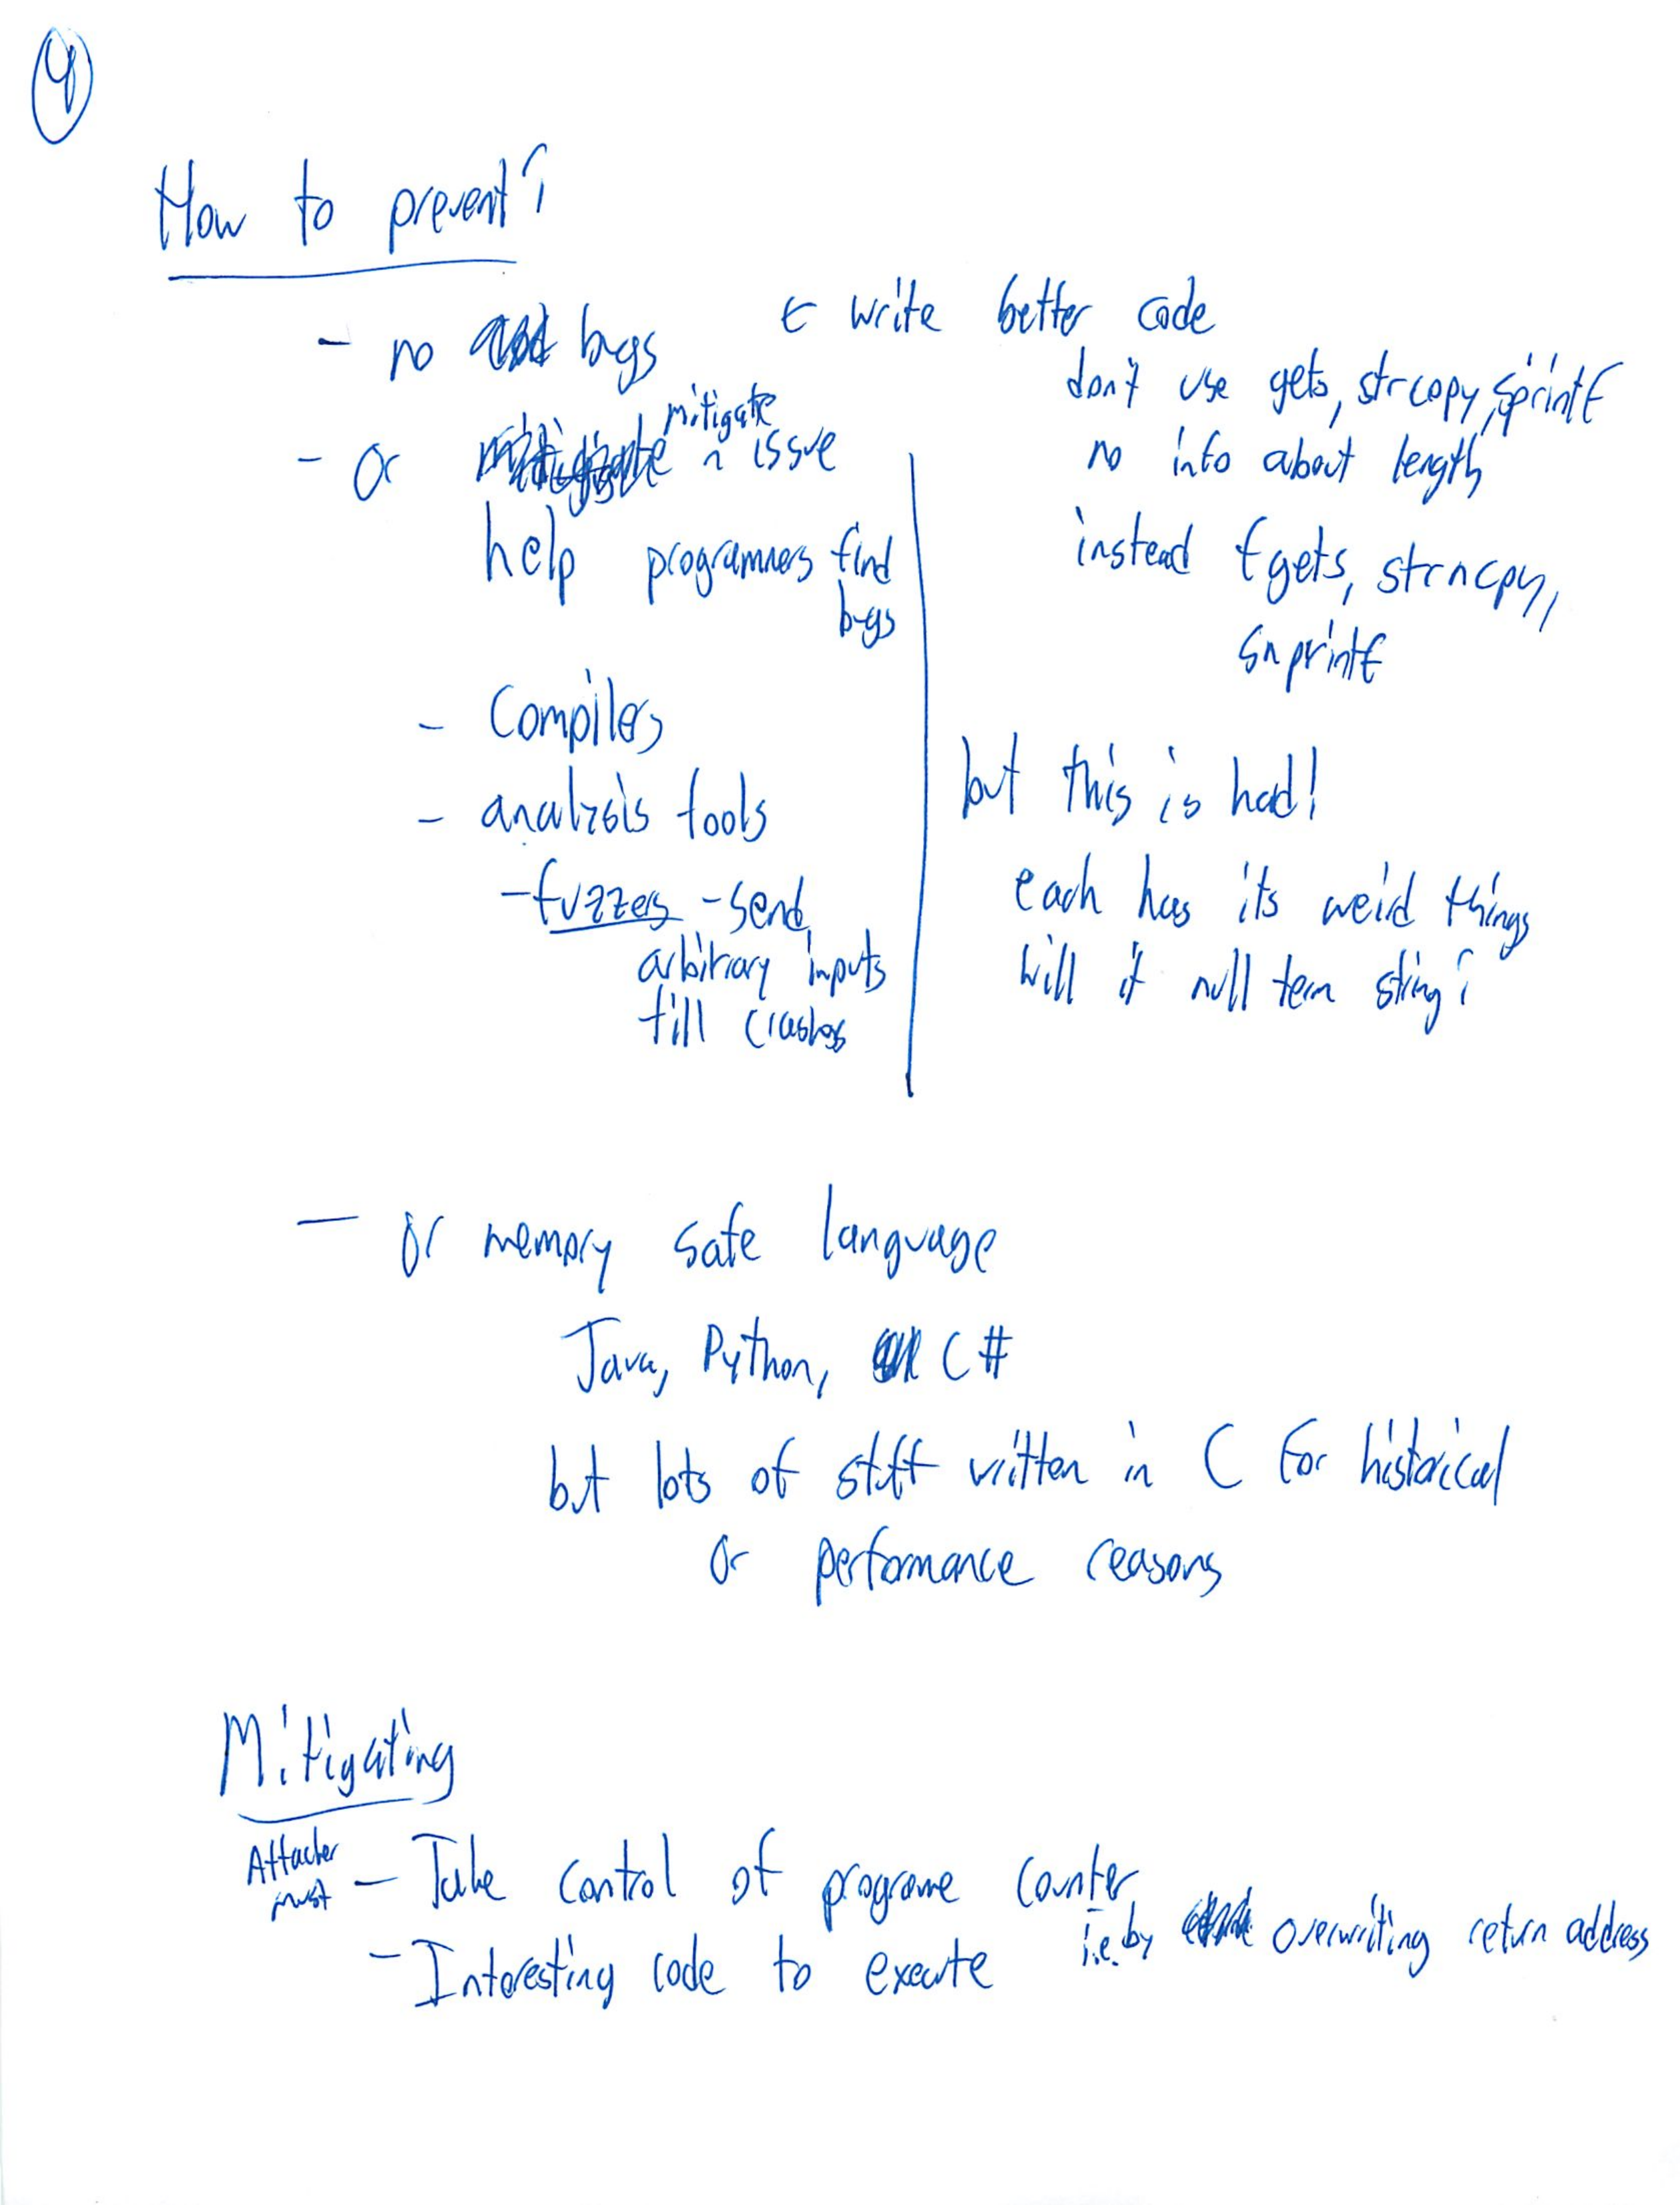 4
How to prevent?
- no bugs
← write better code
don't use gets, strcopy, sprintf
no info about length
instead fgets, strncpy,
snprintf
but this is had!
each has its weird things
will it null term string?
- or mitigate issue
help programmers find
bugs
- Compilers
- analysis tools
- fuzzers - send
arbitrary inputs
till crashes
- or memory safe language
Java, Python, C#
but lots of stuff written in C for historical
or performance reasons
Mitigating
Attacker
must
- Take control of programe counter
i.e. by overwriting return address
- Interesting code to execute